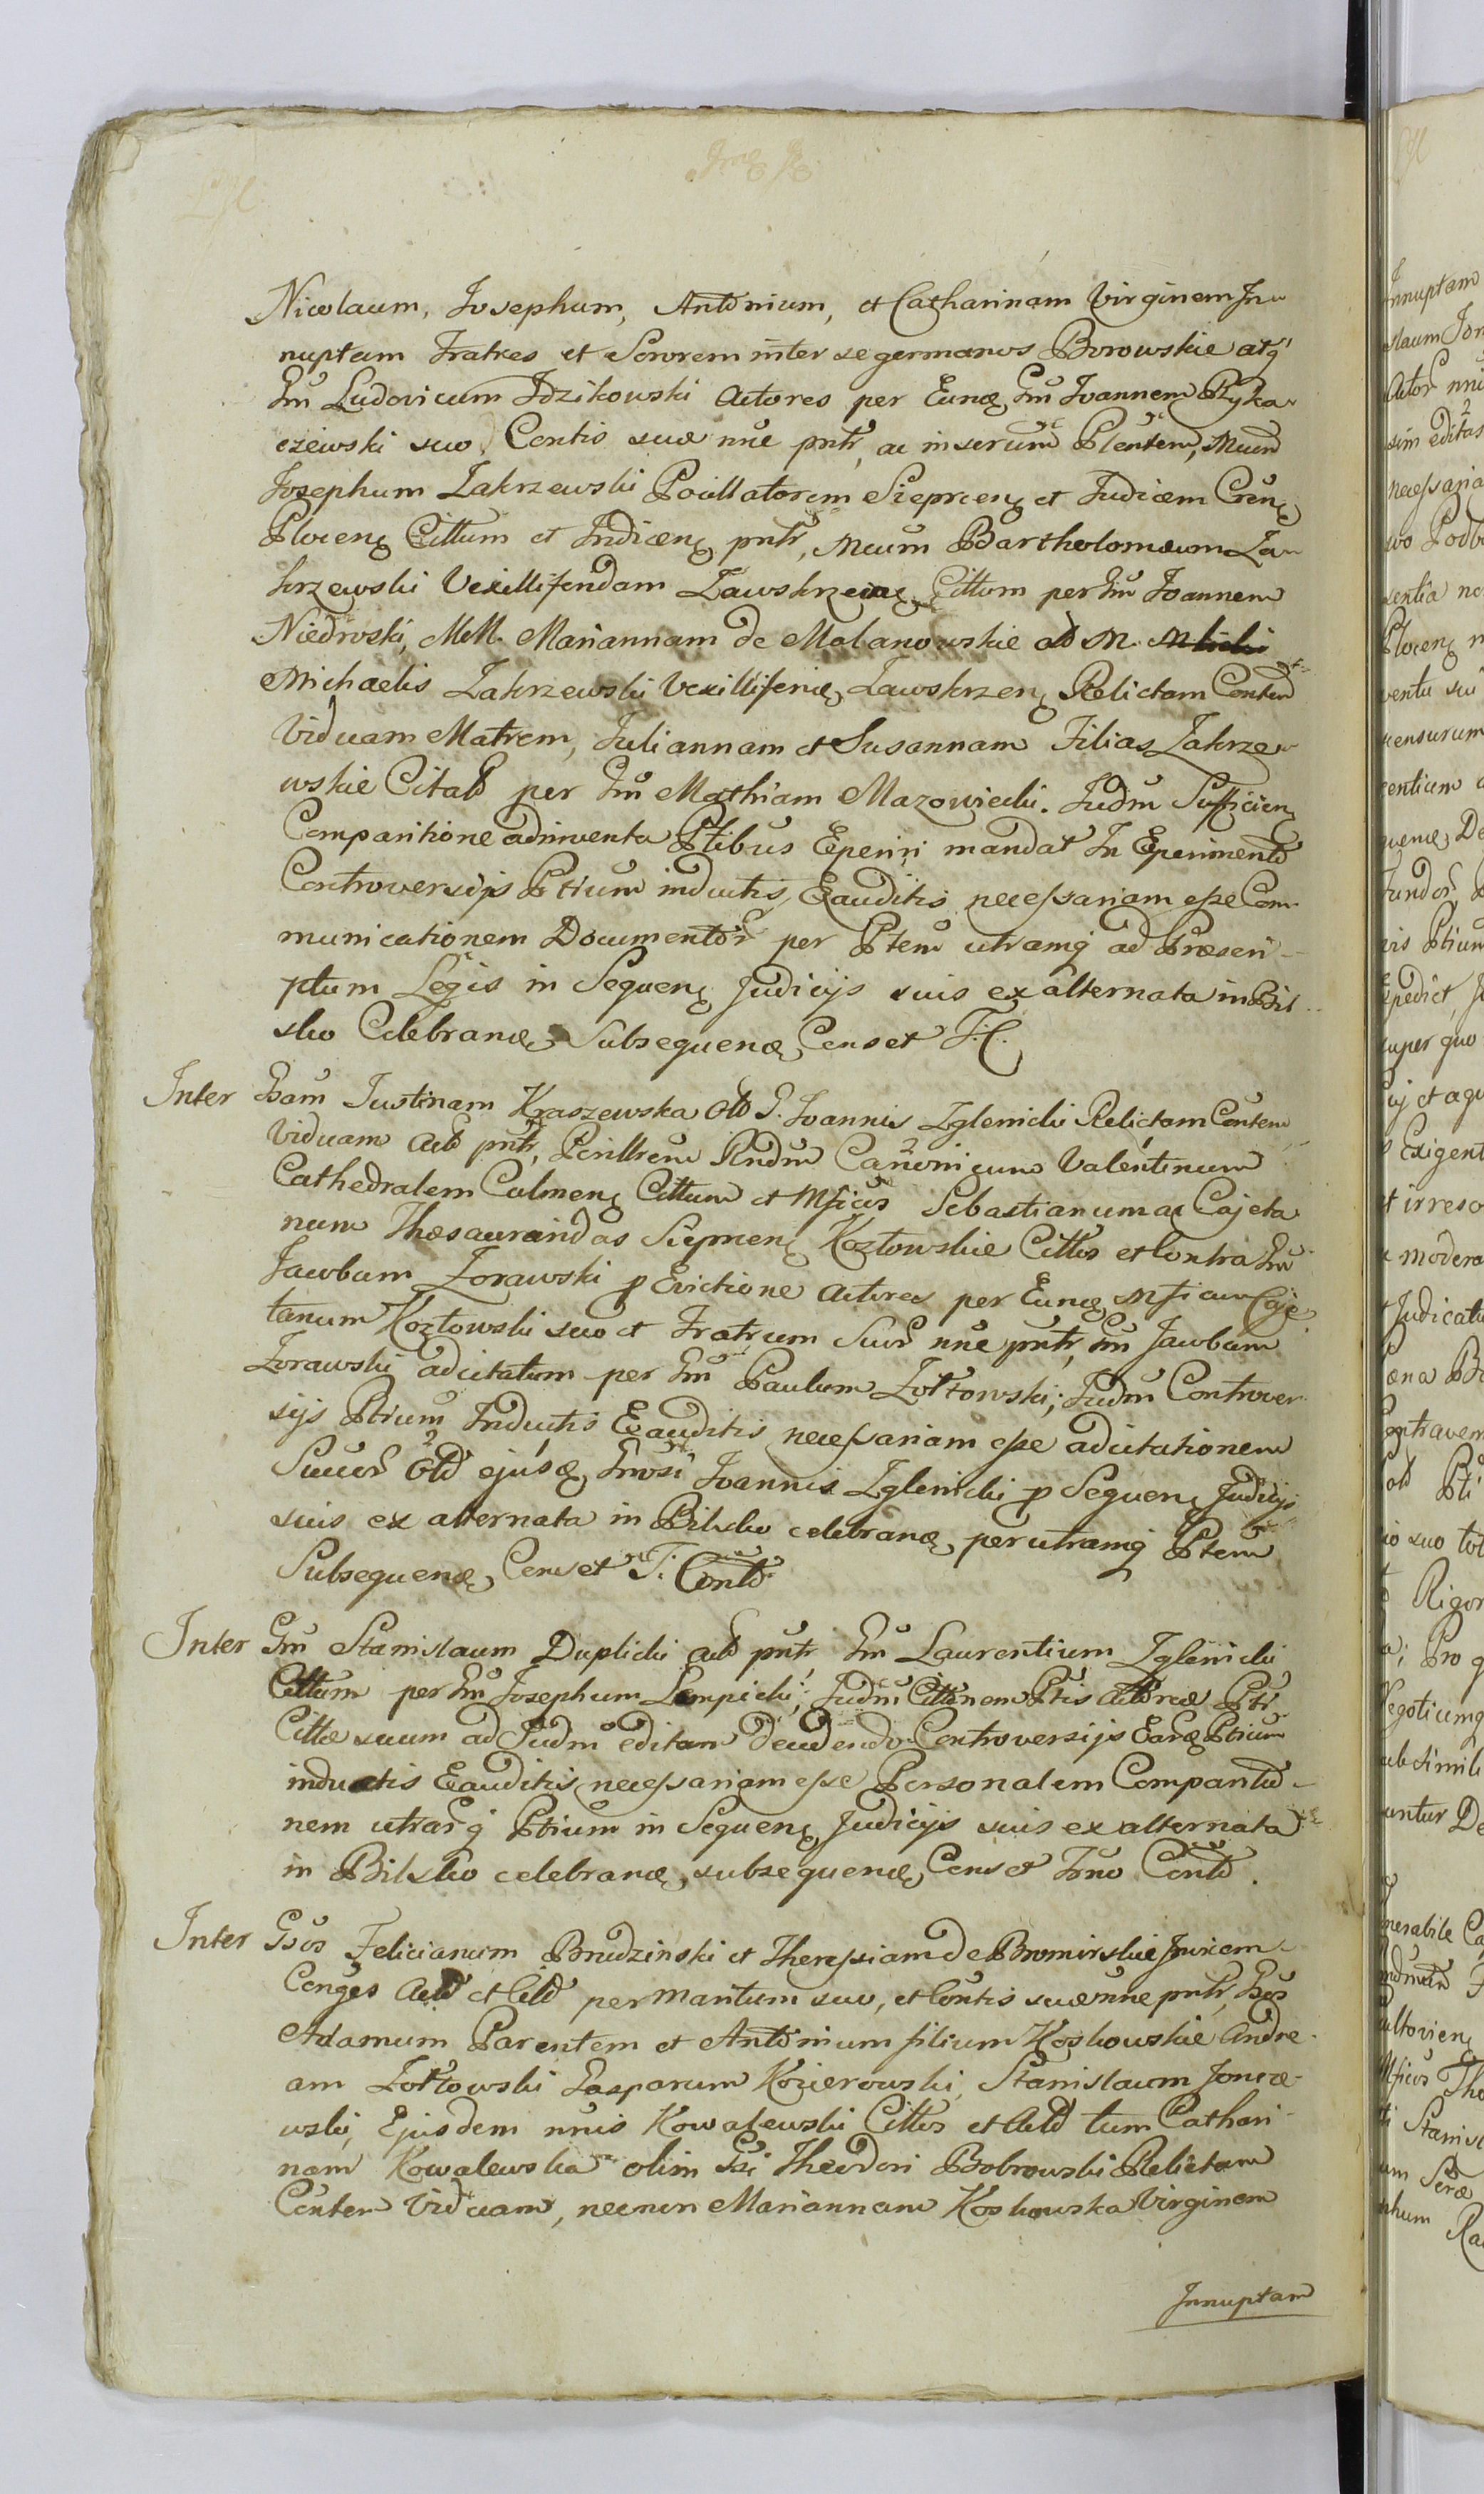 Nicolaum, Josephum, Antonium, et Catharinam Virginem In-
nuptam Fratres et Sororem inter se germanos Borowskie atq
Gm Ludovicum Idzikowski Actores per Eunq Gm Joannem Ryka-
czewski suo Contis suæ nne pntr, ac inserum Plentem, Mcum
Josephum Zakrzewski Pocillatorem Sieprcen et Judicem Cren
Plocen Cittum et Indicen pntr, Mcum Bartholomæum Za-
krzewski Vexilliferidam Zawskrzen Cittum per Gm Joannem
Niedroski, MM. Mariannam de Malanowskie old M.
Michaelis Zakrzewski Vexilliferi Zawskrzen Relictam Conten
Viduam Matrem, Juliannam et Susannam Filias Zakrze-
wskie Citatas per Gm Mathiam Mazowiecki. Judm Sufficien
Comparitione adinventa Ptibus Experiri mandat In Experimento
Controversijs Ptium inductis, Exauditis necessariam esse Com-
municationem Documentor per Ptem utramq ad Præscri-
ptum Legis in Sequen Judicijs suis ex alternata in Bil-
sko Celebran Subsequen Censet T:C.
Inter Gsam Justinam Kraszewska old G. Joannis Zglenicki Relictam Conten
Viduam Act pntr, Perillrem Rndm Canonicum Valentinum
Cathedralem Culmen Cittum et Mficos Sebastianum ac Cajeta
num Thesauraridas Sieprcen Kozłowskie Cittos et Contra Gm
Jacobum Zorawski p Evictione Actores per Eunq Mficum Caje
tanum Kozłowski suo et Fratrum Suor nne pntr, Gm Jacobum
Zorawski adcitatum per Gm Paulum Zołtowski; Judm Controver
sijs Ptium Inductis Exauditis necessariam esse adcitationem
Succor old ejusq Gnrosi Joannis Zglenicki p Sequen Judicijs
suis ex alternata in Bilsko celebran per utramq Ptem
Subsequen Censet T: Conto
Inter Gm Stanislaum Duplicki act pntr, Gm Laurentium Zglenicki
Cittum per Gm Josephum Lempicki; Judm Cittonem Ptis Actoreæ Pti
Cittæ suum ad Judm editam decidendo Controversijs Earq Ptium
inductis Exauditis necessariam esse Personalem Comparitio-
nem utrarq Ptium in Sequen Judicijs suis ex alternata
in Bilsko celebran, subsequen Censet Trno Conto.
Inter Gsos Felicianum Brudzinski et Theressiam de Bromirskie Invicem
Conges Act et Citt per Maritum suo, et Contis suæ nne pntr, Gsos
Adamum Parentem et Antonium filium Koskowskie Andre-
am Zołtowski Gasparum Kozierowski, Stanislaum Joncze-
wski, Ejusdem nnis Kowalewski Cittos et Act tum Cathari-
nam Kowalewska olim Gsi Theodori Bobrowski Relictam
Conten Viduam, necnon Mariannam Koskowska Virginem
Innuptam